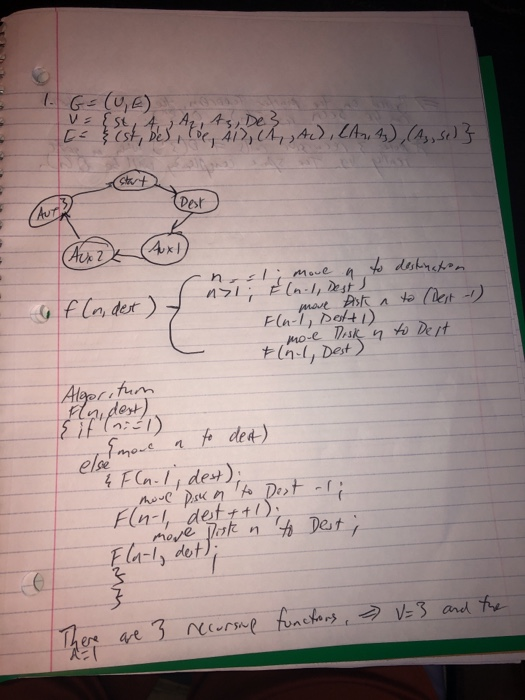 1. G = (V, E)
V = {St, A1, A2, A3, De}
E = {(St, De), (De, A1), (A1, A2), (A2, A3), (A3, St)}
Start
Aux 3
Dest
Aux 2
Aux 1
n == 1 ; move n to destination
n > 1 ; F(n-1, Dest)
move Disk n to (Dest -1)
f(n, dest)
F(n-1, Dest+1)
move Disk n to Dest
F(n-1, Dest)
Algorithm
F(n, dest)
{ if (n==1)
{move n to dest)
else
{ F(n-1, dest);
move Disk n to Dest -1;
F(n-1, dest++1);
move Disk n to Dest;
F(n-1, dest);
}
}
There are 3 recursive functions, ⇒ V=3 and the
=1